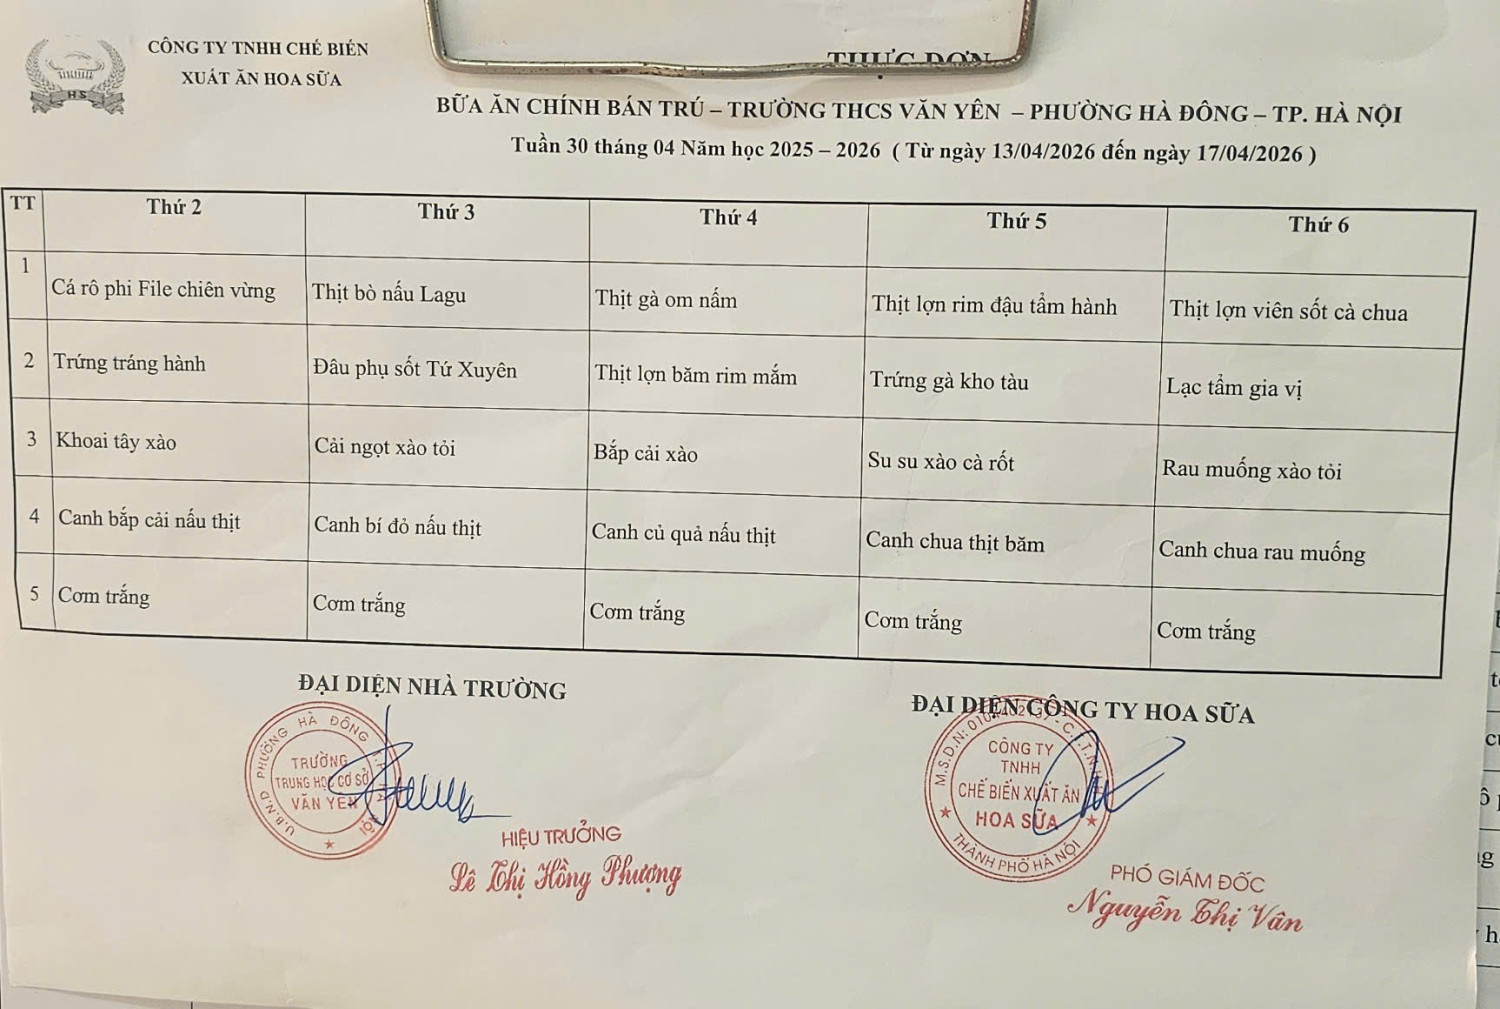 CÔNG TY TNHH CHẾ BIẾN
XUẤT ĂN HOA SỮA
HS
THỰC ĐƠN
BỮA ĂN CHÍNH BÁN TRÚ – TRƯỜNG THCS VĂN YÊN – PHƯỜNG HÀ ĐÔNG – TP. HÀ NỘI
Tuần 30 tháng 04 Năm học 2025 – 2026 ( Từ ngày 13/04/2026 đến ngày 17/04/2026 )
TT Thứ 2 Thứ 3 Thứ 4 Thứ 5 Thứ 6
1 Cá rô phi File chiên vừng Thịt bò nấu Lagu Thịt gà om nấm Thịt lợn rim đậu tẩm hành Thịt lợn viên sốt cà chua
2 Trứng tráng hành Đâu phụ sốt Tứ Xuyên Thịt lợn băm rim mắm Trứng gà kho tàu Lạc tẩm gia vị
3 Khoai tây xào Cải ngọt xào tỏi Bắp cải xào Su su xào cà rốt Rau muống xào tỏi
4 Canh bắp cải nấu thịt Canh bí đỏ nấu thịt Canh củ quả nấu thịt Canh chua thịt băm Canh chua rau muống
5 Cơm trắng Cơm trắng Cơm trắng Cơm trắng Cơm trắng
ĐẠI DIỆN NHÀ TRƯỜNG
U.B.N.D PHƯỜNG HÀ ĐÔNG
TRƯỜNG
TRUNG HỌC CƠ SỞ
VĂN YÊN
HIỆU TRƯỞNG
Lê Thị Hồng Phượng
ĐẠI DIỆN CÔNG TY HOA SỮA
M.S.D.N:
CÔNG TY
TNHH
CHẾ BIẾN XUẤT ĂN
HOA SỮA
THÀNH PHỐ HÀ NỘI
PHÓ GIÁM ĐỐC
Nguyễn Thị Vân